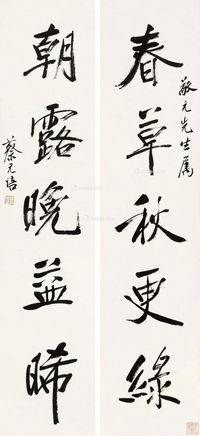 敬元先生属
春草秋更綠
朝露晚益晞
蔡元培